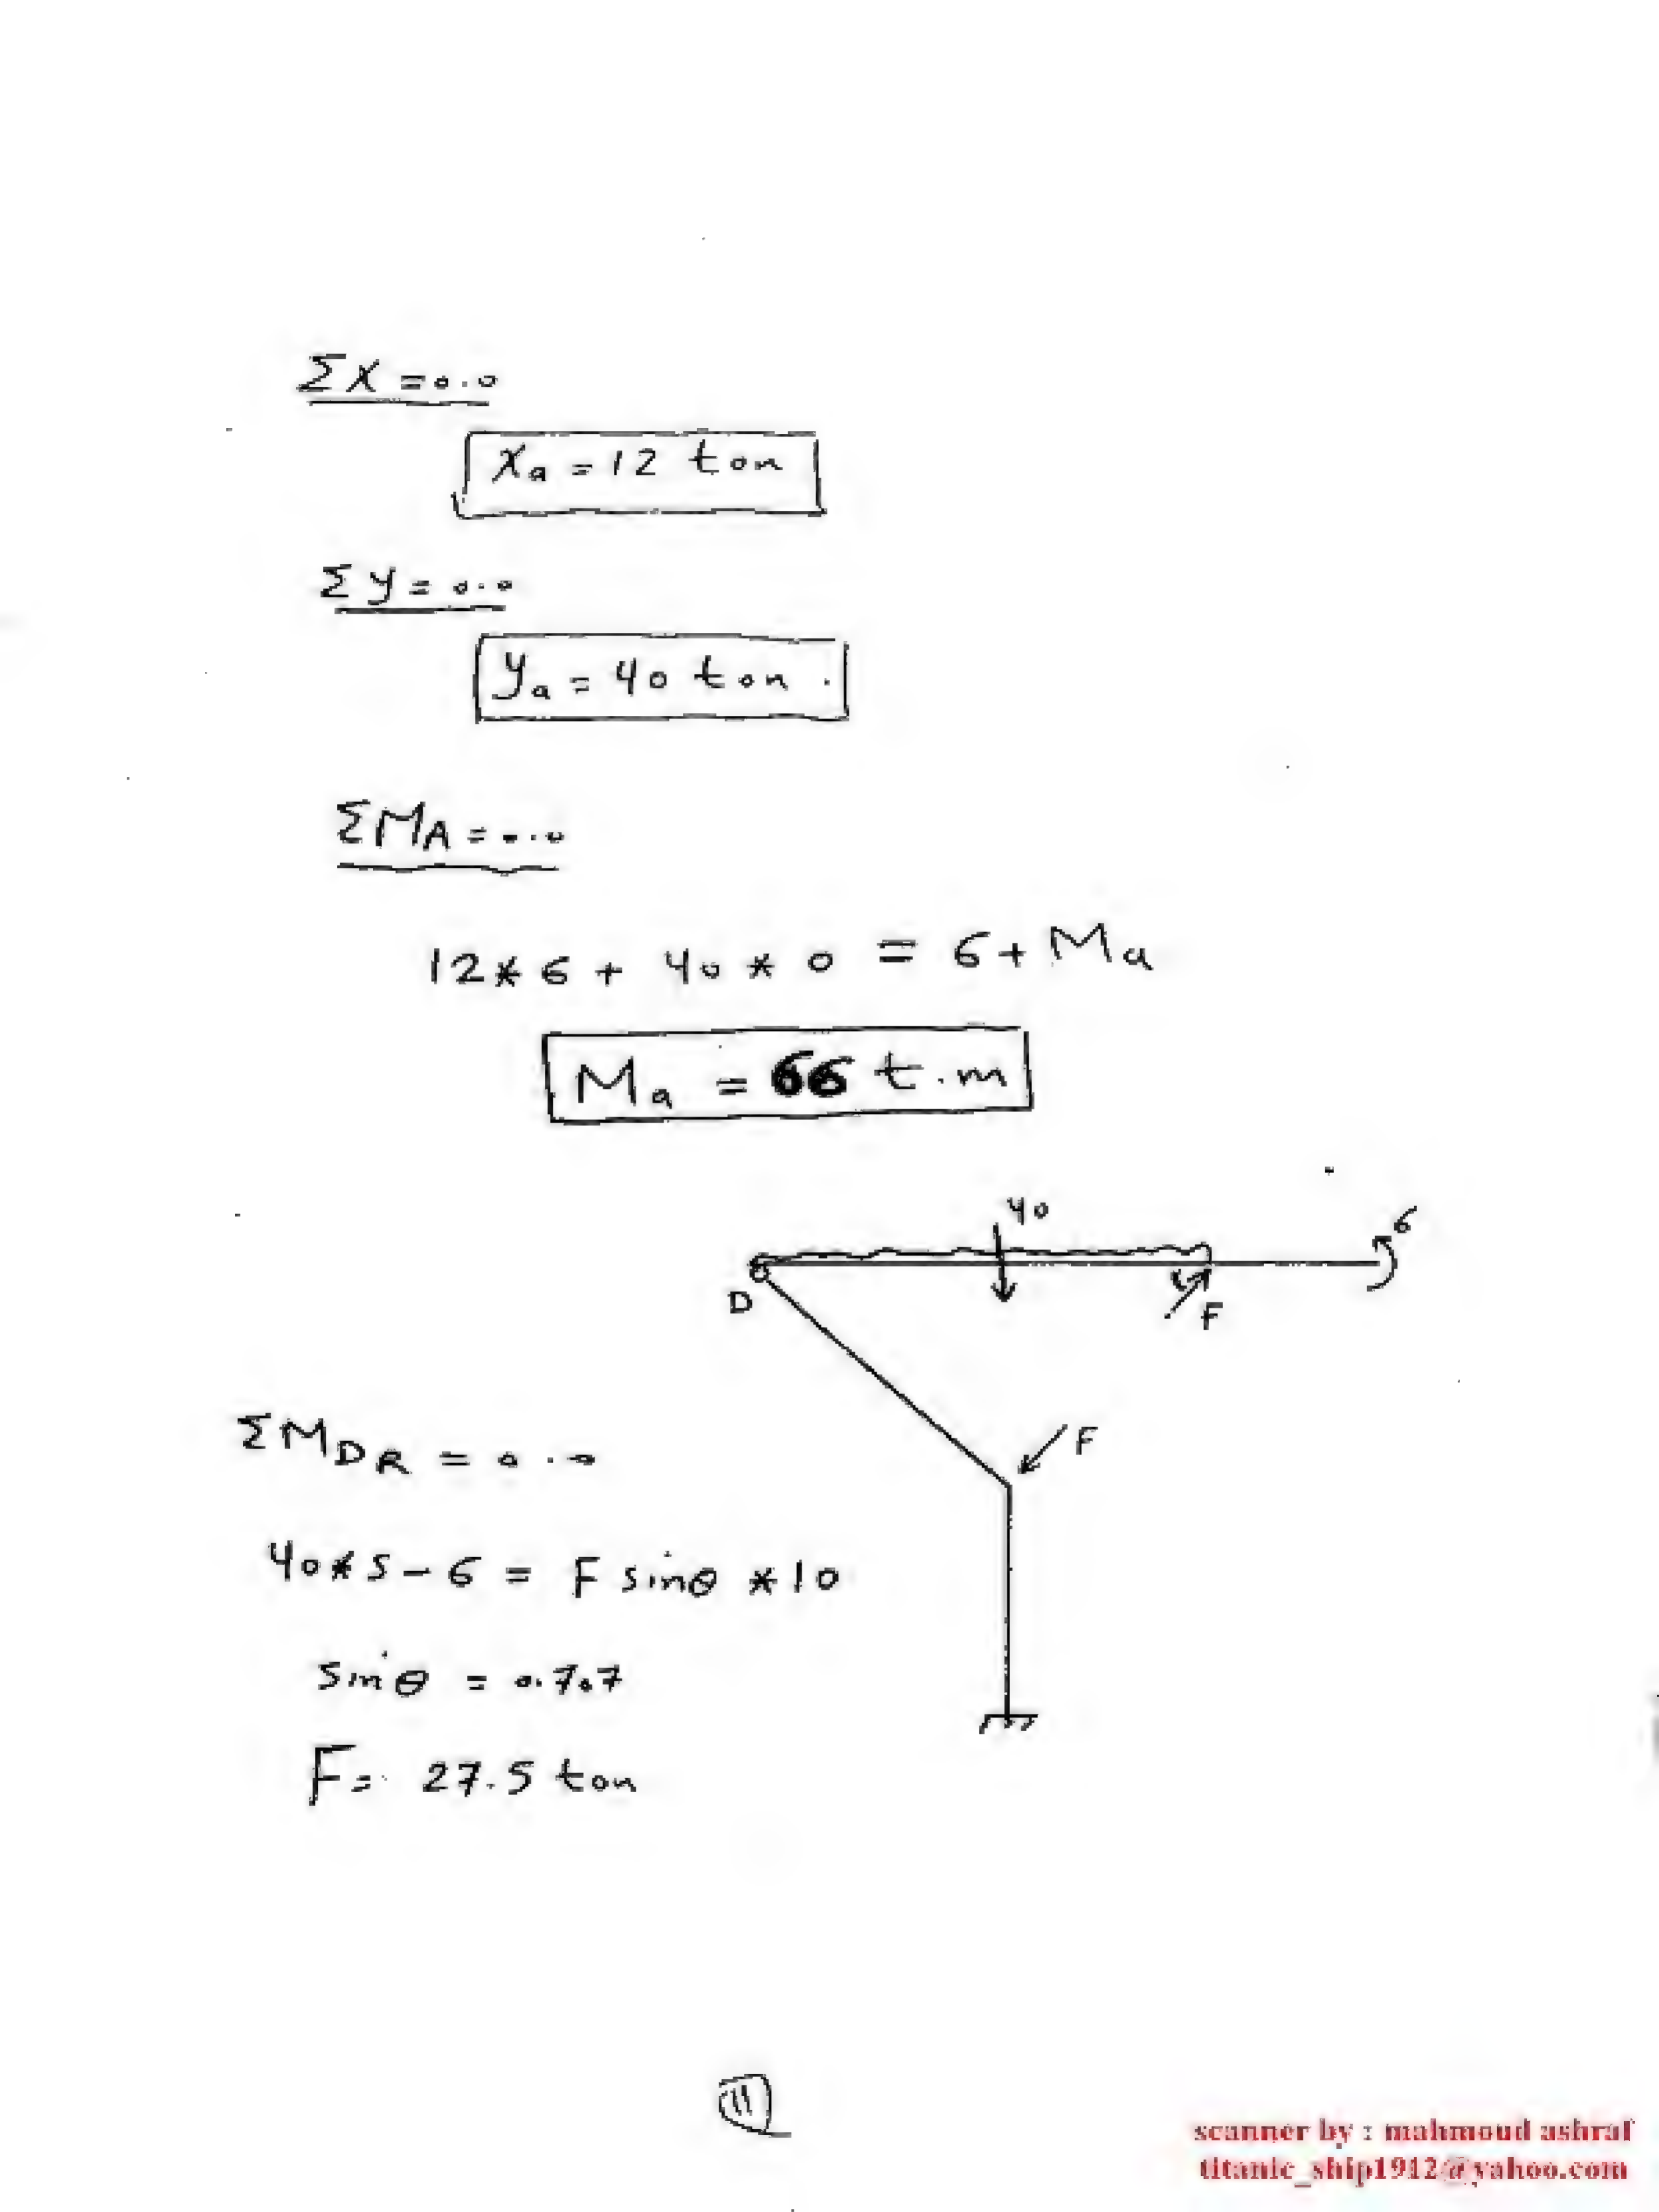 ΣX = 0.0
Xa = 12 ton
Σy = 0.0
ya = 40 ton.
ΣMA = 0.0
12*6 + 40*0 = 6+Ma
Ma = 66 t.m
40
6
D
F
F
ΣMDR = 0.0
40*5-6 = F sinθ *10
sinθ = 0.707
F = 27.5 ton
11
scanner by : mahmoud ashraf
titanic_ship1912@yahoo.com